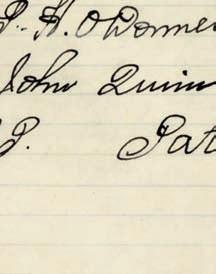 P. H. O'Donnel
John Quinn
P. Pat